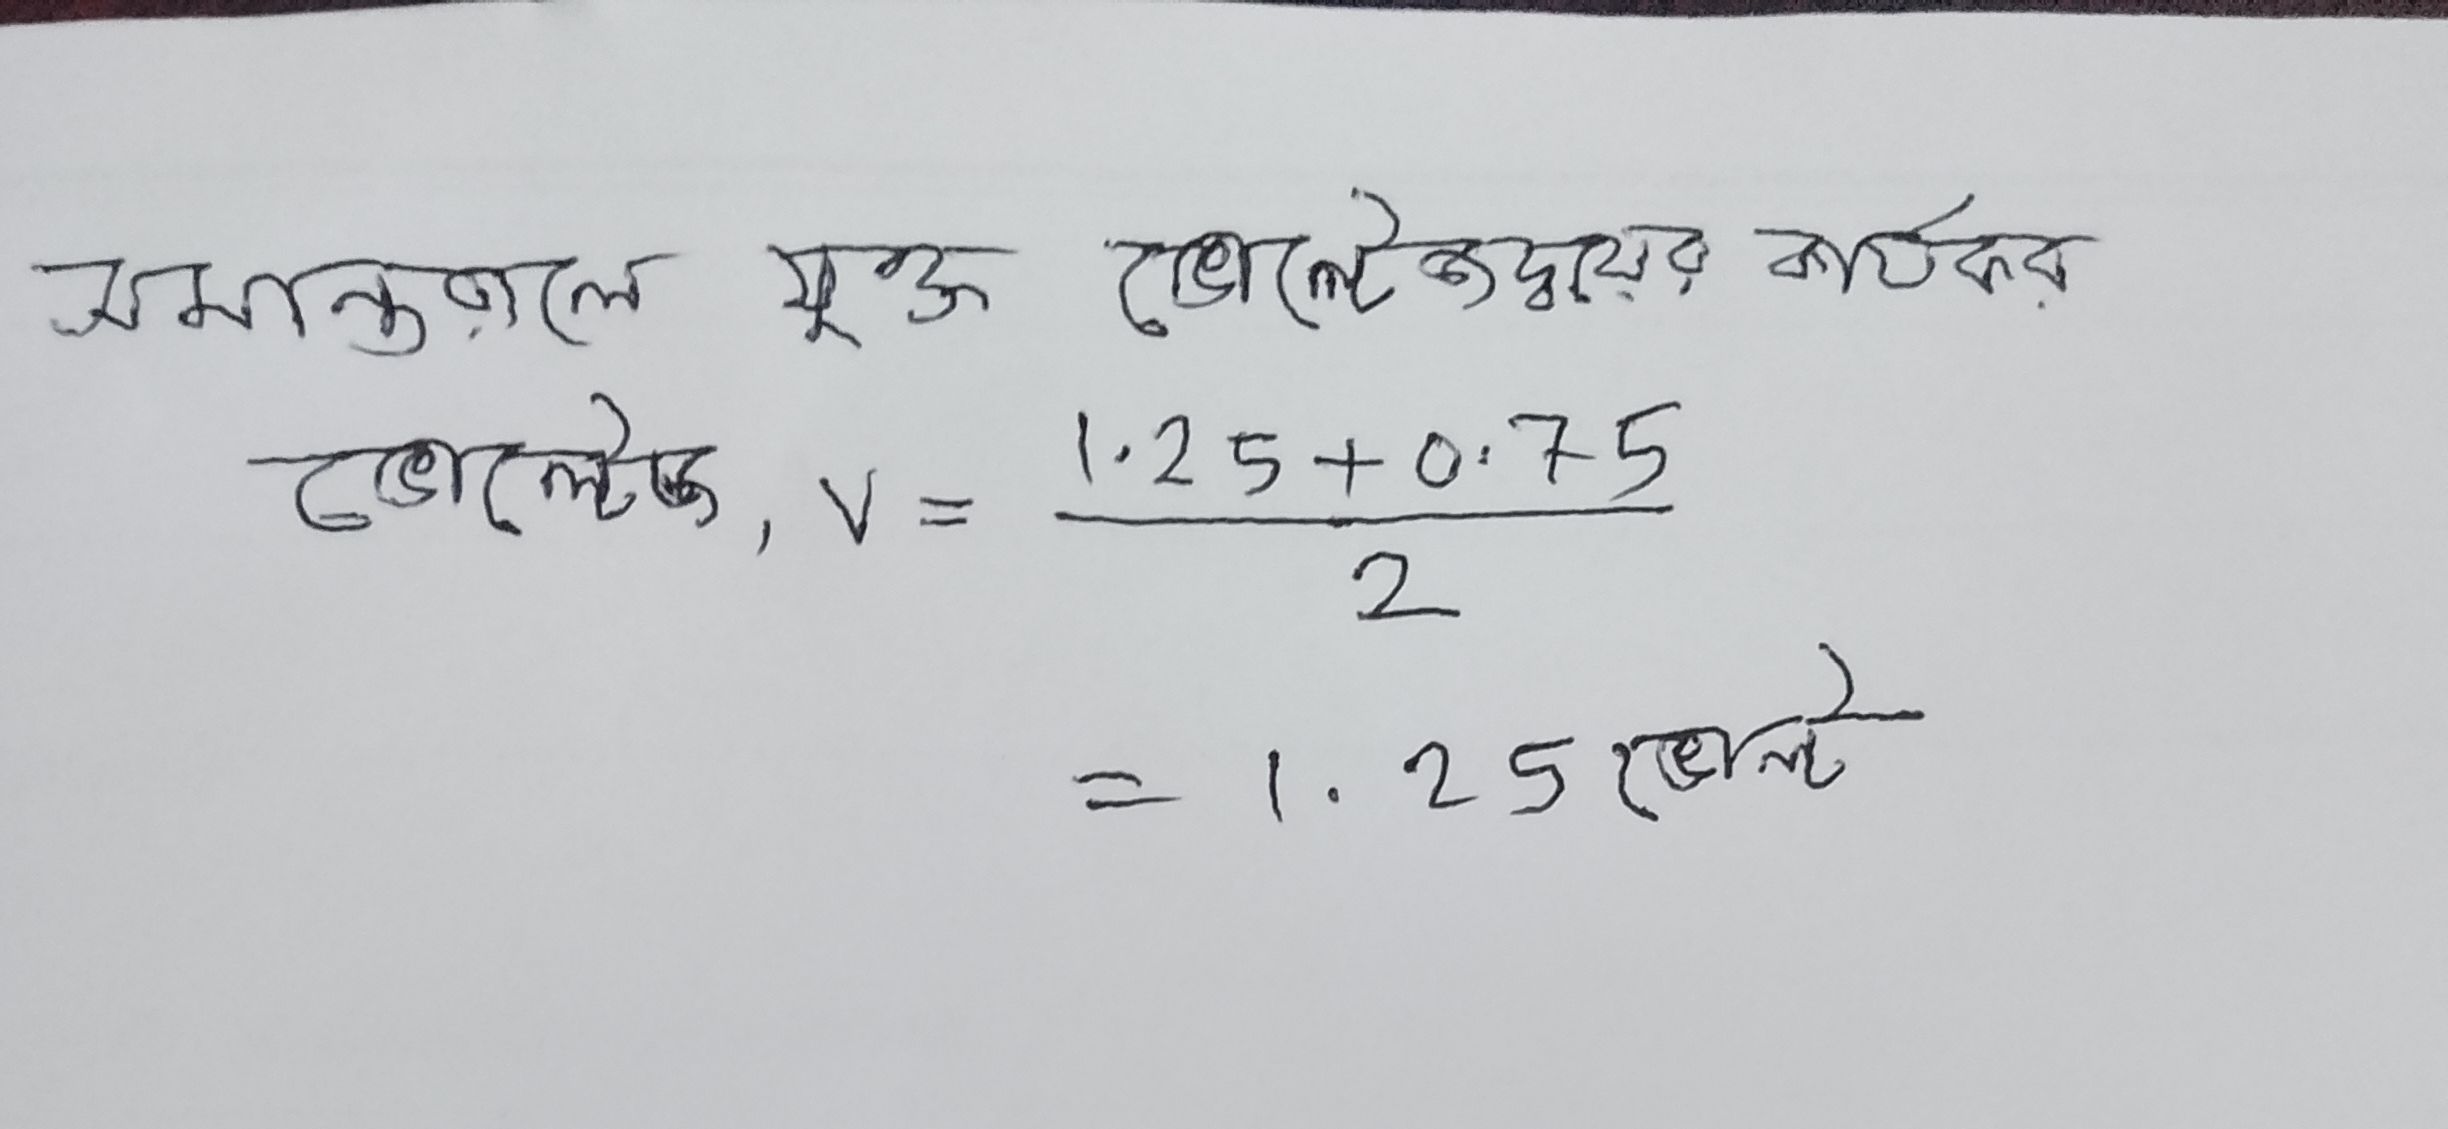 সমান্তরালে যুক্ত ভোল্টেজদ্বয়ের কার্যকর
ভোল্টেজ, V = (1.25 + 0.75) / 2
= 1.25 ভোল্ট